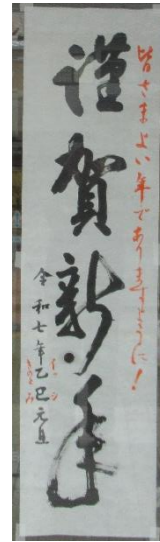 皆さまよい年でありますように!
謹賀新年
令和七年乙巳元旦